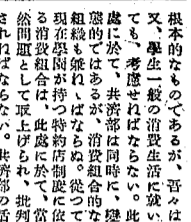 根本的なものであるが、吾々
又、學生一般の消費生活に就い
ても、考慮せねばならない。此
處に於て、共濟部は同時に、變
態的ではあるが、消費組合的な
組織も兼ねゝばならぬ。從つて
現在學園が持つ特約店制度に依
る消費組合は、此處に於て、當
然問題として取上げられ、批判
されねばならない。共濟部の活